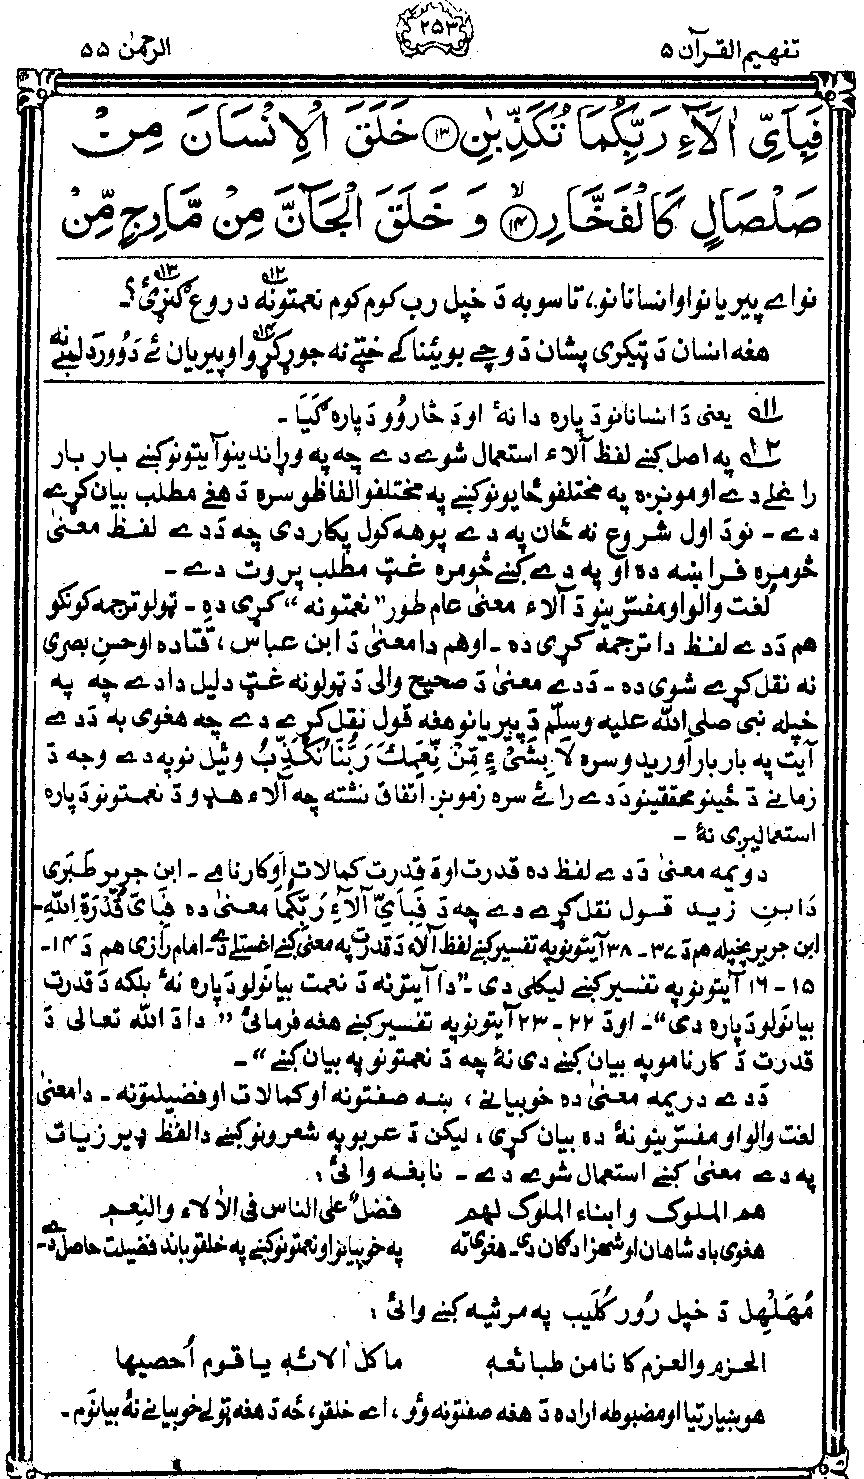 تفهیم القرآن ۵
۲۵۳
الرحمٰن ۵۵
فَبِاَیِّ اٰلَآءِ رَبِّکُمَا تُکَذِّبٰنِ ۝۱۳ خَلَقَ الْاِنْسَانَ مِنْ
صَلْصَالٍ کَالْفَخَّارِ ۝۱۴ۙ وَ خَلَقَ الْجَآنَّ مِنْ مَّارِجٍ مِّنْ
نو اے پیریانو او انسانانو، تاسو به دَ خپل رب کوم کوم نعمتونه ۱۲ دروغ کنړیٔ ۱۳؟ـ
هغه انسان دَ ټیکری پشان دَ وچے بویئنا کے ختے نه جوړ کړو ۱۴ او پیریان ئے دَ اُور دَ لمبے نه
۱۱ یعنی دَ انسانانو دَ پاره دا نهٔ او دَ څارُوو دَ پاره گیا ـ
۱۲ په اصل کښے لفظ آلاء استعمال شوے دے چه په وړاندینو آیتونو کښے بار بار
راغلے دے او مونږه په مختلفو ځایونو کښے په مختلفو الفاظو سره دَ هغے مطلب بیان کړے
دے ـ نو دَ اول شروع نه ځان په دے پوهه کول پکار دی چه دَ دے لفظ معنیٰ
څومره فراښه ده او په دے کښے څومره غټ مطلب پروت دے ـ
لُغت والو او مفسّرینو دَ آلاء معنیٰ عام طور "نعمتونه" کړی دهٖ ـ ټولو ترجمه کونکو
هم دَ دے لفظ دا ترجمه کړی ده ـ او هم دا معنیٰ دَ ابن عباس، قتاده او حسن بصری
نه نقل کړے شوی ده ـ دَ دے معنیٰ دَ صحیح والی دَ ټولو نه غټ دلیل دا دے چه په
خپله نبی صلی الله علیه وسلّم دَ پیریانو هغه قول نقل کړے دے چه هغوی به دَ دے
آیت په بار بار اَوریدو سره لَا بِشَیْءٍ مِّنْ نِّعَمِكَ رَبَّنَا نُکَذِّبُ وئیل نو په دے وجه دَ
زمانے دَ ځینو محققینو دَ دے رائے سره زمونږ اتفاق نشته چه آلاء هډو دَ نعمتونو دَ پاره
استعمالیږی نهٔ ـ
دویمه معنیٰ دَ دے لفظ ده قدرت او دَ قدرت کمالات او کارنامے ـ ابن جریر طبَری
دَ ابنِ زید قسول نقل کړے دے چه دَ فَبِاَیِّ آلَآءِ رَبِّکُمَا معنیٰ ده فَبِاَیِّ قُدْرَةِ اللهِ ـ
ابن جریر پخپله هم دَ ۳۷ ـ ۳۸ آیتونو په تفسیر کښے لفظ آلاء دَ قدرت په معنیٰ کښے اغستلے دے ـ امام رازی هم دَ ۱۴ ـ
۱۵ ـ ۱۶ آیتونو په تفسیر کښے لیکلی دی ـ "دا آیتونه دَ نعمت بیانولو دَ پاره نهٔ بلکه دَ قدرت
بیانولو دَ پاره دی" ـ او دَ ۲۲ ـ ۲۳ آیتونو په تفسیر کښے هغه فرمائی "دا دَ الله تعالی دَ
قدرت دَ کارنامو په بیان کښے دی نهٔ چه دَ نعمتونو په بیان کښے" ـ
دَ دے دریمه معنیٰ ده خوبیانے، ښه صفتونه او کمالات او فضیلتونه ـ دا معنیٰ
لغت والو او مفسّرینو نهٔ ده بیان کړی، لیکن دَ عربو په شعرونو کښے دا لفظ ډیر زیات
په دے معنیٰ کښے استعمال شوے دے ـ نابغه وائی:
هم الملوک و ابناء الملوک لهم فضل علی الناس فی الاٰلاء والنعم
هغوی بادشاهان او شهزادگان دی ـ هغوی ته په خوبیانو او نعمتونو کښے په خلقو باندے فضیلت حاصل دے ـ
مُهَلْهِل دَ خپل رُور کُلَیب په مرثیه کښے وائی:
الحزم والعزم کانا من طبائعه ما کل اٰلائه یا قوم اُحصیها
هوښیارتیا او مضبوطه اراده دَ هغه صفتونه وُو، اے خلقو، څه دَ هغه ټولے خوبیانے نهٔ بیانوم ـ